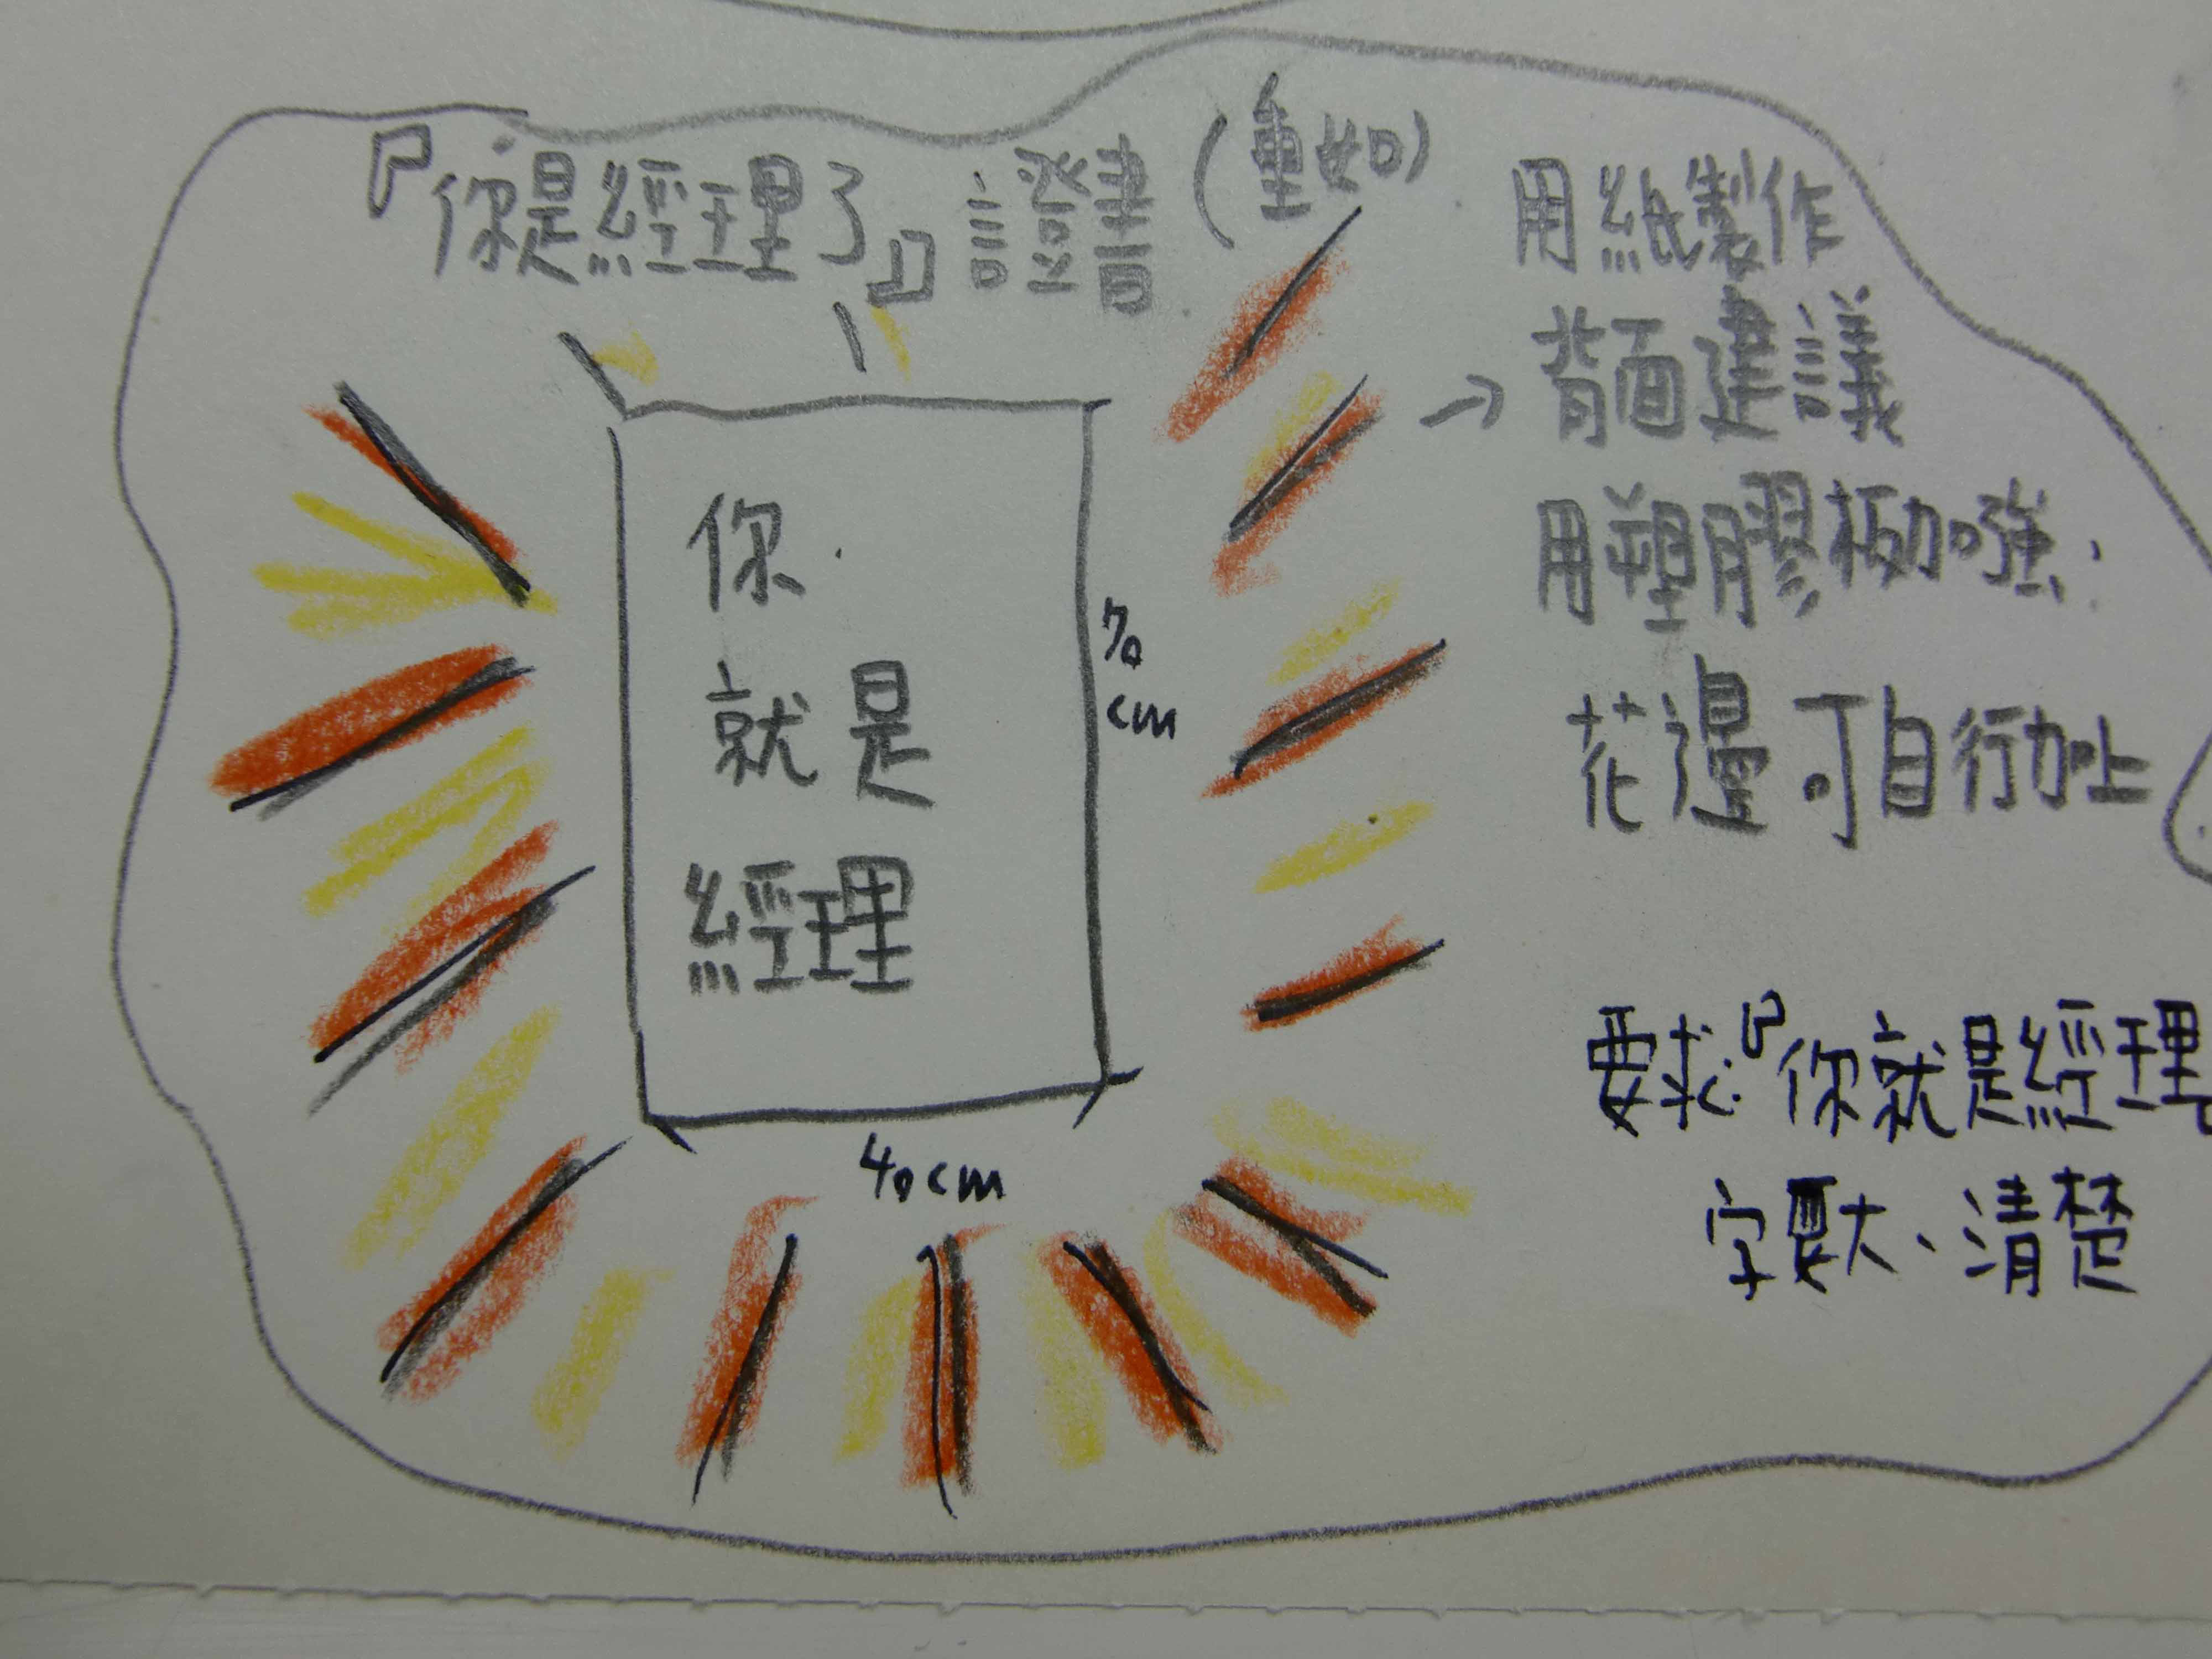 『你是經理了』證書(重如)
用紙製作
→背面建議
用塑膠板加強.
花邊可自行加上
你
就是
經理
70
cm
40cm
要求:『你就是經理』
字要大、清楚